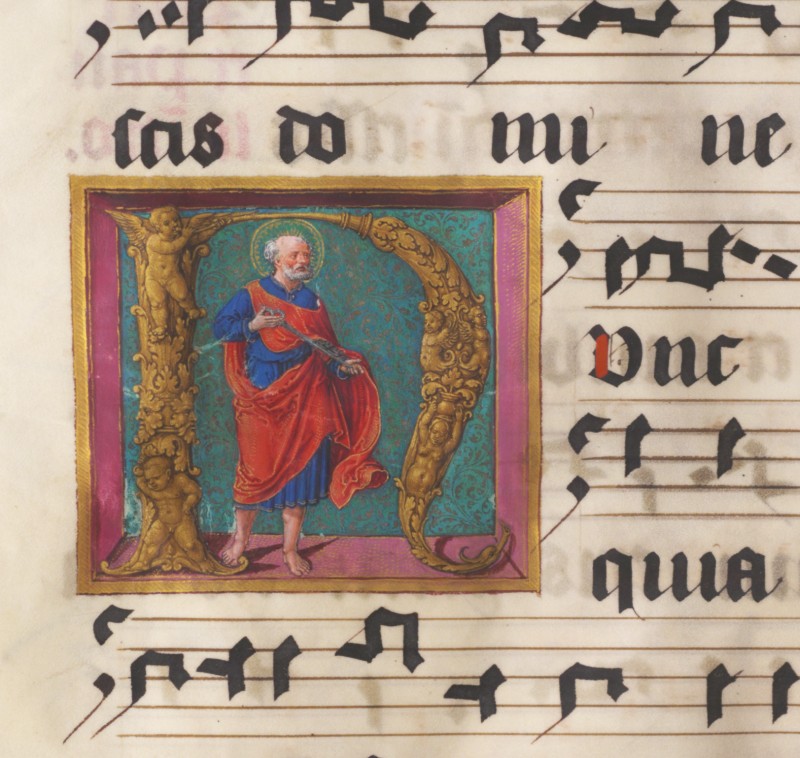 ſcis do mi ne
N Vnc
quia